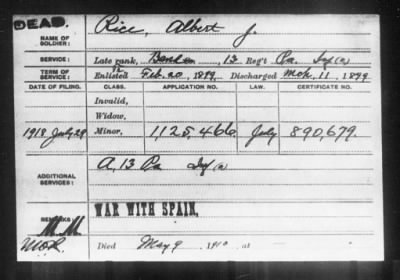 DEAD.
NAME OF SOLDIER: Rice, Albert J.
SERVICE: Late rank, 13 Reg't Pa. Inf
TERM OF SERVICE: Enlisted Feb. 20, 1899, Discharged Mch. 11, 1899
DATE OF FILING. CLASS. APPLICATION NO. LAW. CERTIFICATE NO.
Invalid,
Widow,
1918 July 29 Minor, 1,125,466 July 890,679
ADDITIONAL SERVICES: A, 13 Pa Inf
REMARKS: WAR WITH SPAIN,
Died May 9, 1910 at